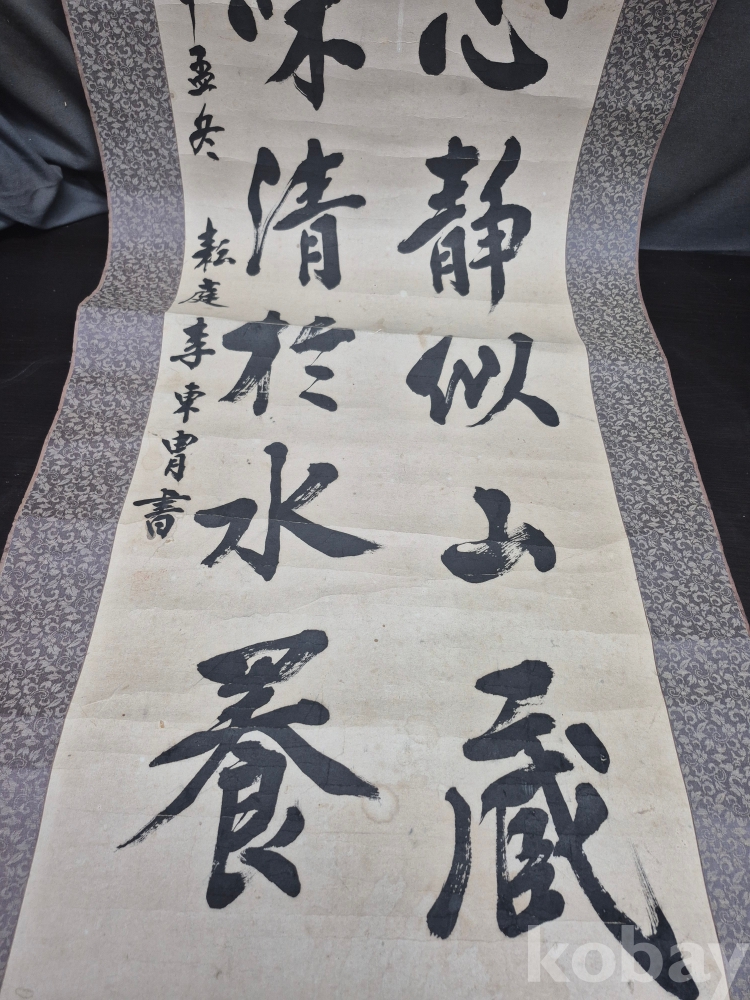 心靜似山藏
味清於水養
孟冬 耘庭李東胄書
kobay